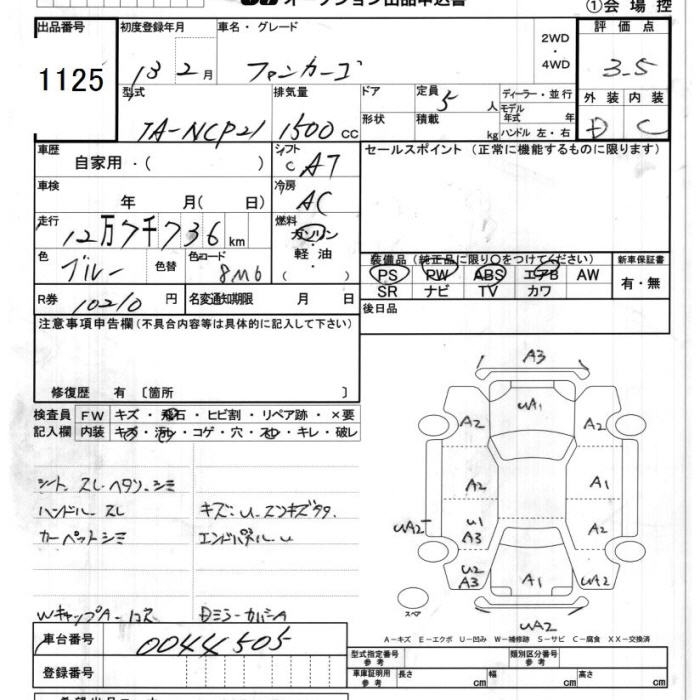 オークション出品申込書
①会場控
出品番号 初度登録年月 車名・グレード 2WD・4WD 評価点
1125 13 2月 ファンカーゴ 3.5
型式 排気量 ドア 定員 5人 ディーラー・並行 外装 内装
形状 積載 kg モデル年式 年
ハンドル 左・右
TA-NCP21 1500cc D C
車歴 シフト セールスポイント (正常に機能するものに限ります)
自家用・( ) C AT
車検 冷房
年 月( 日) AC
走行 燃料
12万7千736km ガソリン・軽油・( )
色 ブルー 色替 色コード 8M6
装備品 (純正品に限り○をつけてください) 新車保証書
PS PW ABS エアB AW 有・無
SR ナビ TV カワ
R券 10210円 名変通知期限 月 日
後日品
注意事項申告欄(不具合内容等は具体的に記入して下さい)
修復歴 有 〔箇所 〕
検査員記入欄 FW キズ・飛石・ヒビ割・リペア跡・×要
内装 キズ・汚れ・コゲ・穴・スレ・キレ・破レ
シート スレ ヘタリ シミ
ハンドル スレ
カーペットシミ
エンドパネル U
A3
UA1
A2 A2
A2 A1
UA2 U1 A3 A2
U2 A3 A1 UA2
UA2
スペア
A-キズ E-エクボ U-凹み W-補修跡 S-サビ C-腐食 XX-交換済
車台番号 0044505
登録番号
型式指定番号 参考 類別区分番号 参考
車庫証明用 参考 長さ cm 幅 cm 高さ cm